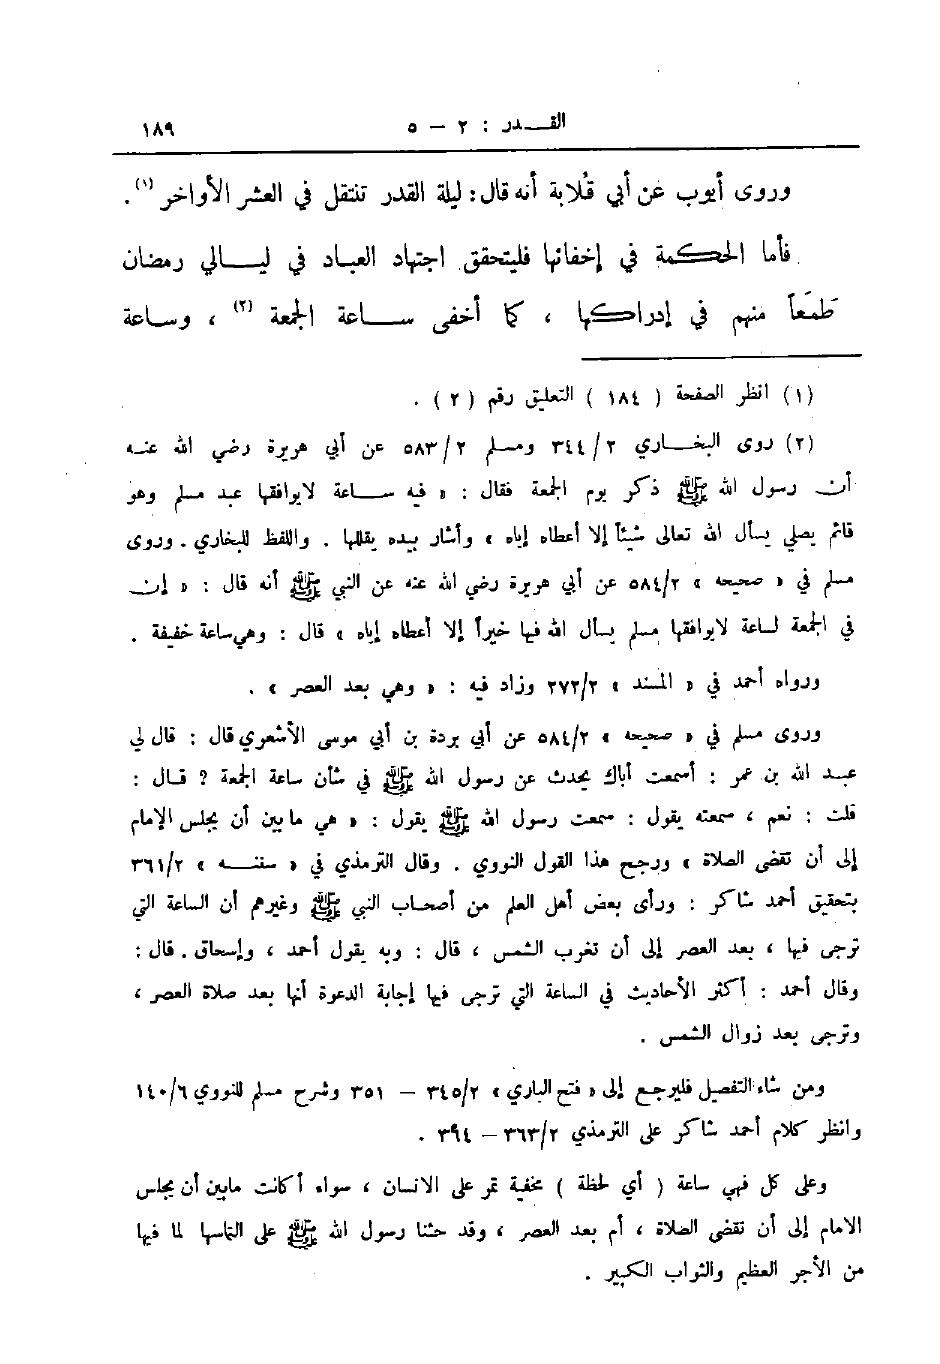 القدر : ٢ - ٥ ١٨٩
وروى أيوب عن أبي قُلابة أنه قال : ليلة القدر تنتقل في العشر الأواخر (١) .
فأما الحكمة في إخفائها فليتحقق اجتهاد العباد في ليالي رمضان
طَمَعاً منهم في إدراكها ، كما أخفى ساعة الجمعة (٢) ، وساعة
(١) انظر الصفحة ( ١٨٤ ) التعليق رقم ( ٢ ) .
(٢) روى البخاري ٣٤٤/٢ ومسلم ٥٨٣/٢ عن أبي هريرة رضي الله عنه
أن رسول الله ﷺ ذكر يوم الجمعة فقال : « فيه ساعة لايوافقها عبد مسلم وهو
قائم يصلي يسأل الله تعالى شيئاً إلا أعطاه إياه » وأشار بيده يقللها . واللفظ للبخاري . وروى
مسلم في « صحيحه » ٥٨٤/٢ عن أبي هريرة رضي الله عنه عن النبي ﷺ أنه قال : « إن
في الجمعة لساعة لايوافقها مسلم يسأل الله فيها خيراً إلا أعطاه إياه » قال : وهي ساعة خفيفة .
ورواه أحمد في « المسند » ٢٧٢/٢ وزاد فيه : « وهي بعد العصر » .
وروى مسلم في « صحيحه » ٥٨٤/٢ عن أبي بردة بن أبي موسى الأشعري قال : قال لي
عبد الله بن عمر : أسمعت أباك يحدث عن رسول الله ﷺ في شأن ساعة الجمعة ؟ قال :
قلت : نعم ، سمعته يقول : سمعت رسول الله ﷺ يقول : « هي ما بين أن يجلس الإمام
إلى أن تقضى الصلاة » ورجح هذا القول النووي . وقال الترمذي في « سننه » ٣٦١/٢
بتحقيق أحمد شاكر : ورأى بعض أهل العلم من أصحاب النبي ﷺ وغيرهم أن الساعة التي
ترجى فيها ، بعد العصر إلى أن تغرب الشمس ، قال : وبه يقول أحمد ، وإسحاق . قال :
وقال أحمد : أكثر الأحاديث في الساعة التي ترجى فيها إجابة الدعوة أنها بعد صلاة العصر ،
وترجى بعد زوال الشمس .
ومن شاء التفصيل فليرجع إلى « فتح الباري » ٣٤٥/٢ - ٣٥١ وشرح مسلم للنووي ١٤٠/٦
وانظر كلام أحمد شاكر على الترمذي ٣٦٣/٢ - ٣٩٤ .
وعلى كل فهي ساعة ( أي لحظة ) مخفية تمر على الانسان ، سواء أكانت مابين أن يجلس
الامام إلى أن تقضى الصلاة ، أم بعد العصر ، وقد حثنا رسول الله ﷺ على التماسها لما فيها
من الأجر العظيم والثواب الكبير .